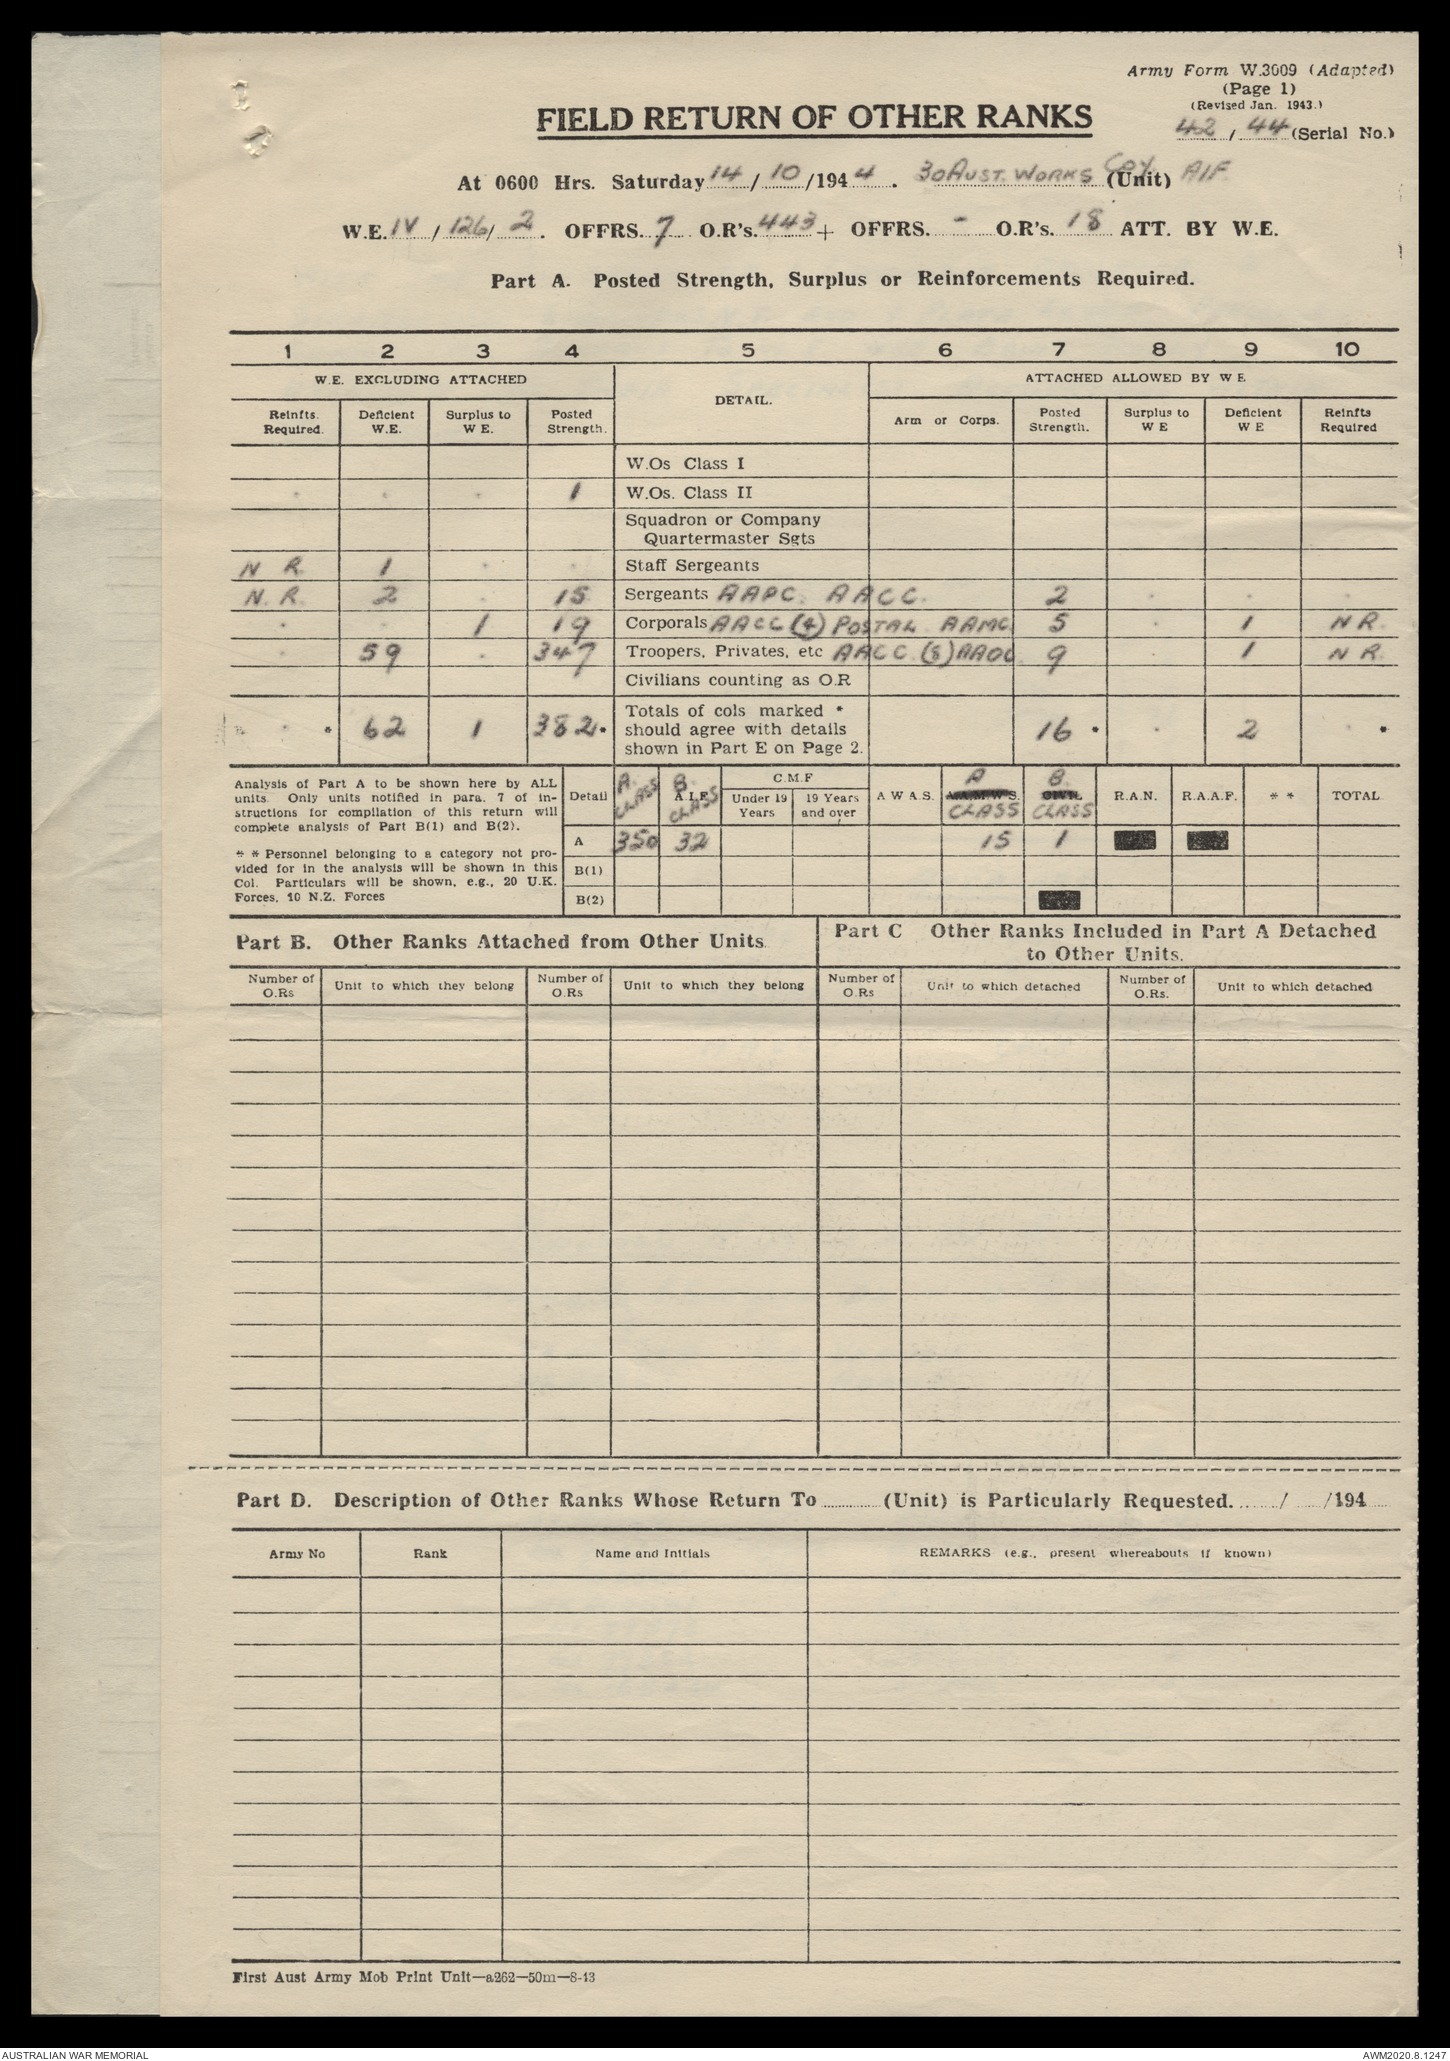 Army Form W.3009 (Adapted)
(Page 1)
(Revised Jan. 1943.)
FIELD RETURN OF OTHER RANKS
42 / 44 (Serial No.)
At 0600 Hrs. Saturday 14 / 10 /194 4 . 30 AUST. WORKS COY (Unit) AIF
W.E. IV / 126 / 2 . OFFRS. 7 O.R's. 443 + OFFRS. - O.R's. 18 ATT. BY W.E.
Part A. Posted Strength, Surplus or Reinforcements Required.
1 2 3 4 5 6 7 8 9 10
W.E. EXCLUDING ATTACHED DETAIL. ATTACHED ALLOWED BY W E
Reinfts. Required. Deficient W.E. Surplus to W E. Posted Strength. Arm or Corps. Posted Strength. Surplus to W E Deficient W E Reinfts Required
W.Os Class I
. . . 1 W.Os. Class II
Squadron or Company
Quartermaster Sgts
N R 1 . . Staff Sergeants
N. R. 2 . 15 Sergeants AAPC. AACC. 2 . . .
. . 1 19 Corporals AACC (4) POSTAL AAMC 5 . 1 N R.
. 59 . 347 Troopers, Privates, etc AACC. (8) AAOC 9 1 N R.
Civilians counting as O.R
. * 62 1 382 * Totals of cols marked *
should agree with details 16 * . 2 . *
shown in Part E on Page 2.
Analysis of Part A to be shown here by ALL
units. Only units notified in para. 7 of in-
structions for compilation of this return will
complete analysis of Part B(1) and B(2).
* * Personnel belonging to a category not pro-
vided for in the analysis will be shown in this
Col. Particulars will be shown, e.g., 20 U.K.
Forces, 10 N.Z. Forces
Detail A. CLASS B. A I.F. CLASS C.M.F Under 19 Years 19 Years and over A W A.S. A CLASS B. CLASS R.A.N. R.A.A.F. * * TOTAL
A 350 32 15 1
B(1)
B(2)
Part B. Other Ranks Attached from Other Units
Part C Other Ranks Included in Part A Detached
to Other Units.
Number of O.Rs Unit to which they belong Number of O.Rs Unit to which they belong Number of O.Rs Unit to which detached Number of O.Rs. Unit to which detached
Part D. Description of Other Ranks Whose Return To ............ (Unit) is Particularly Requested. ...... / ...... /194 ....
Army No Rank Name and Initials REMARKS (e.g., present whereabouts if known)
First Aust Army Mob Print Unit—a262—50m—8-43
AUSTRALIAN WAR MEMORIAL AWM2020.8.1247